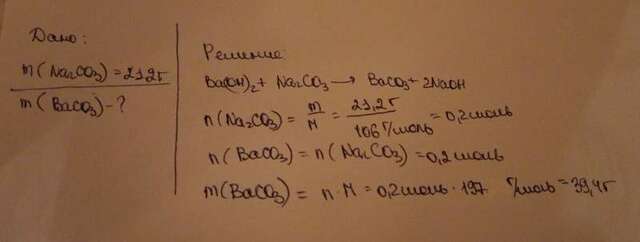 Дано:
m(Na₂CO₃) = 21,2г
m(BaCO₃) - ?
Решение:
Ba(OH)₂ + Na₂CO₃ → BaCO₃ + 2NaOH
n(Na₂CO₃) = m/M = 21,2г / 106 г/моль = 0,2 моль
n(BaCO₃) = n(Na₂CO₃) = 0,2 моль
m(BaCO₃) = n · M = 0,2 моль · 197 г/моль = 39,4г